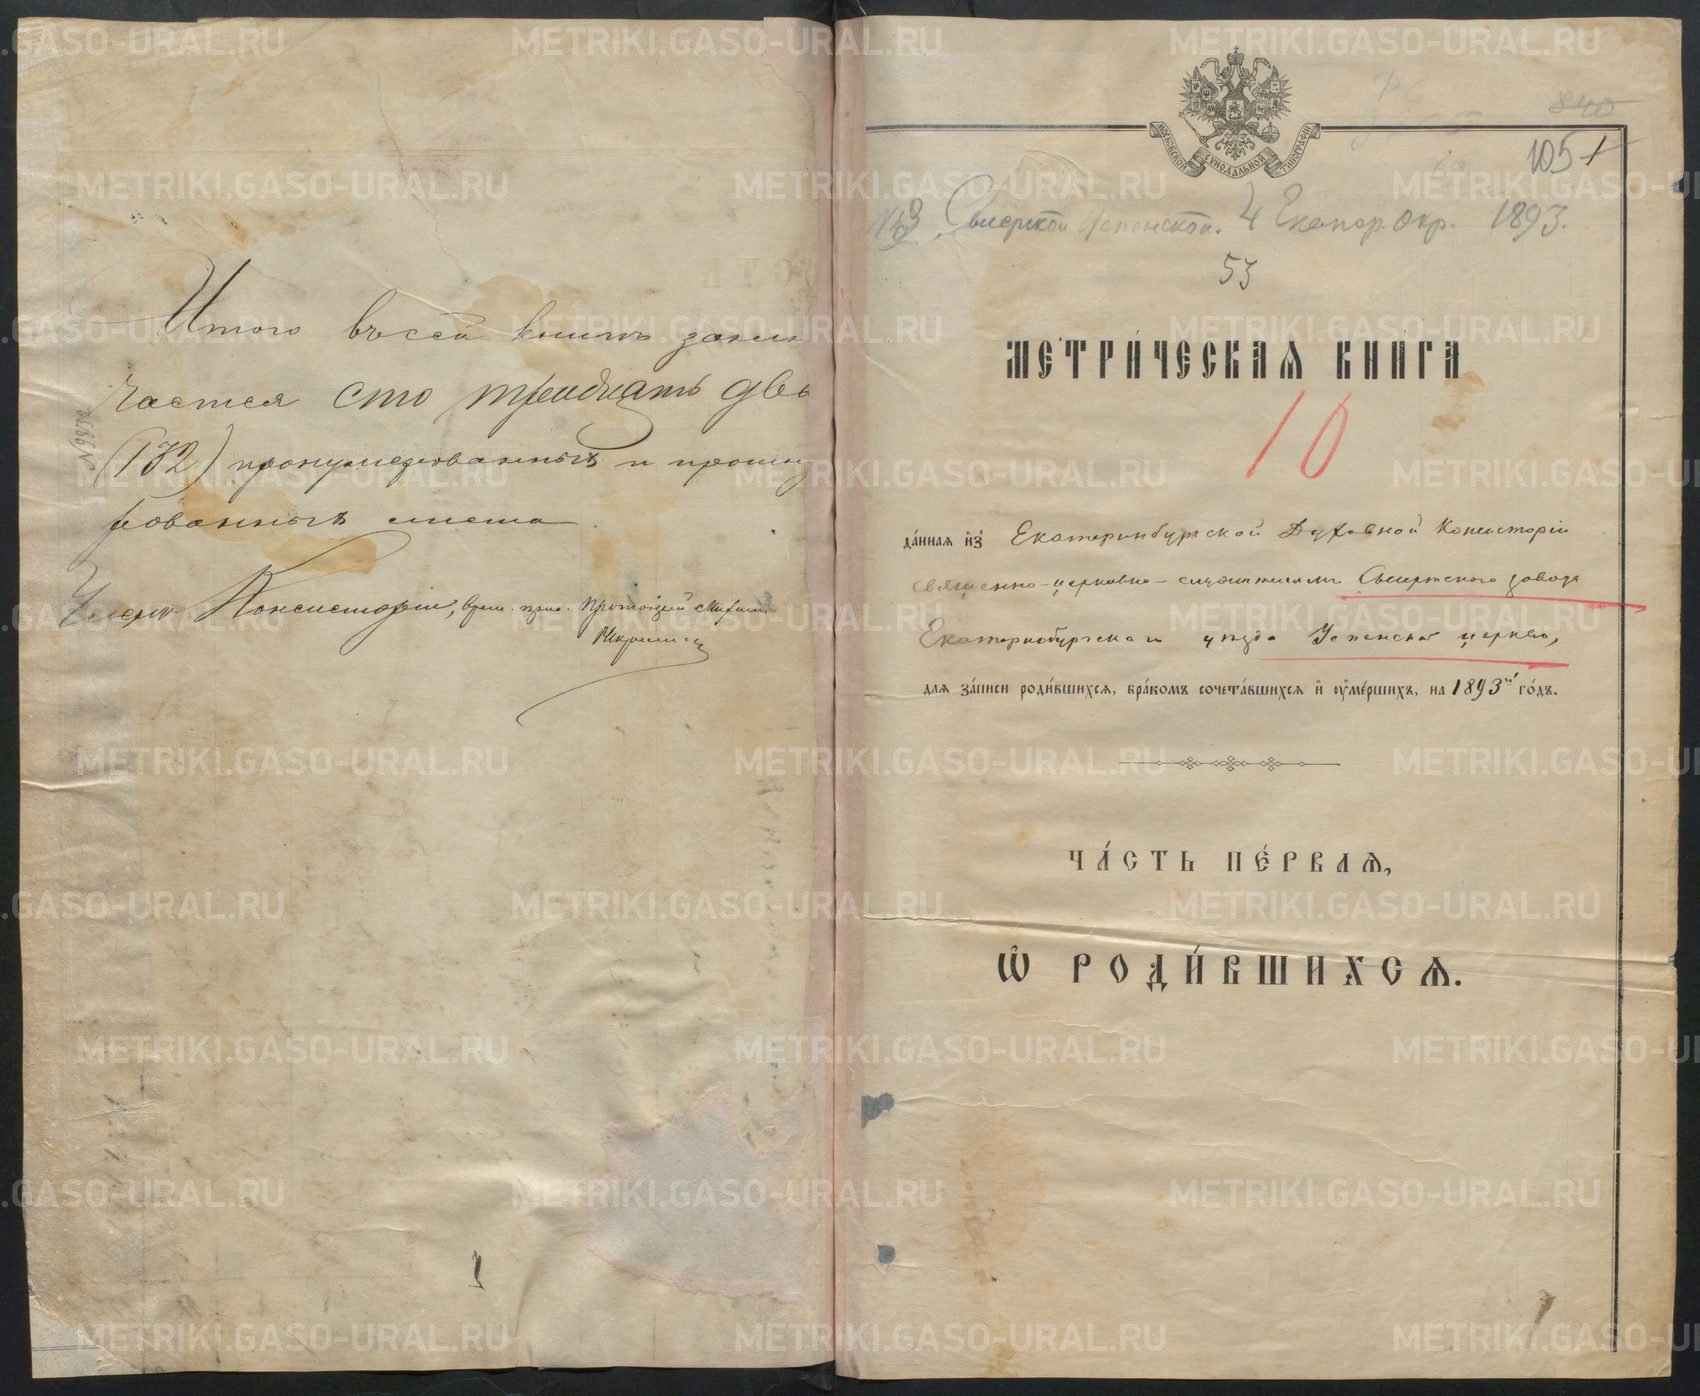 Итого въ сей книгѣ заклю
чается сто тридцать двѣ
(132) пронумерованныхъ и прошну
рованныхъ листа.
Членъ Консисторіи, врем. прис. Протоіерей
МОСКОВСКОЙ СѴНОДАЛЬНОЙ ТИПОГРАФІИ
840
105
1
№3 Сысертской Успенской. 4 Екатер. Окр. 1893.
53
МЕТРИ́ЧЕСКАѦ КНИ́ГА
10
да́ннаѧ и҆з̾ Екатеринбургской Духовной Консисторіи
священно-церковно-служителямъ Сысертского завода
Екатеринбургскаго уѣзда Успенской церкви,
для за́писи роди́вшихсѧ, бра́комъ сочета́вшихсѧ и҆ ᲂу҆ме́ршихъ, на 1893й го́дъ.
ЧА́СТЬ ПЕ́РВАѦ,
Ѽ РОДИ́ВШИХСѦ.
METRIKI.GASO-URAL.RU